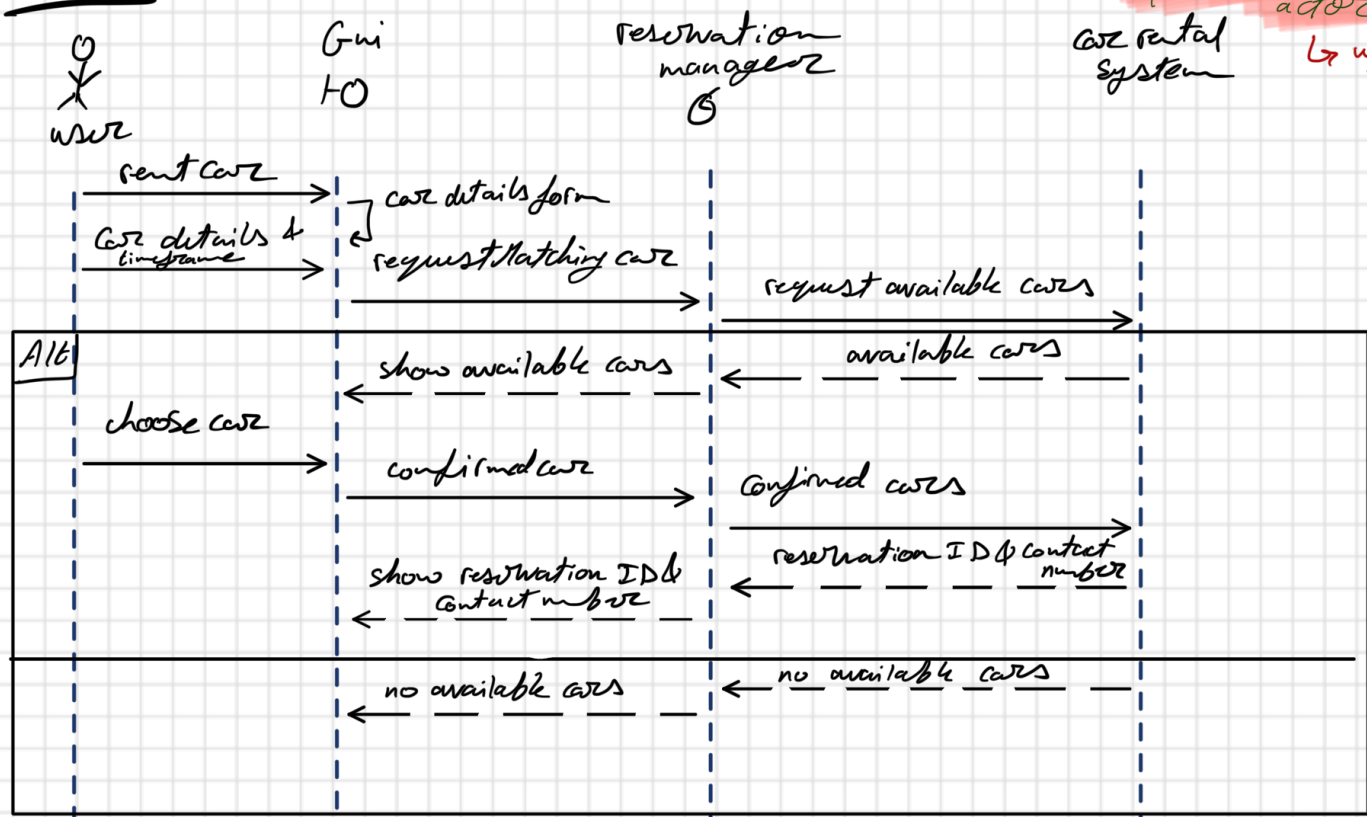 Gui
reservation
manager
car rental
system
user
rent car
car details form
Car details &
timeframe
requestMatching car
request available cars
Alt
available cars
show available cars
choose car
confirmed car
Confirmed cars
reservation ID & contact
number
show reservation ID &
contact number
no available cars
no available cars